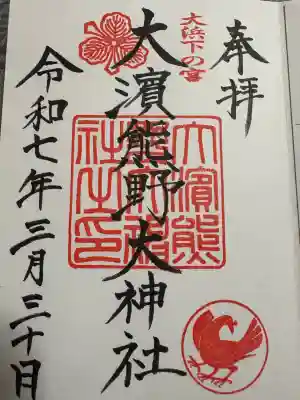 奉拝
大浜下の宮
大濱熊野大神社
大濱熊野大神社之印
令和七年三月三十日